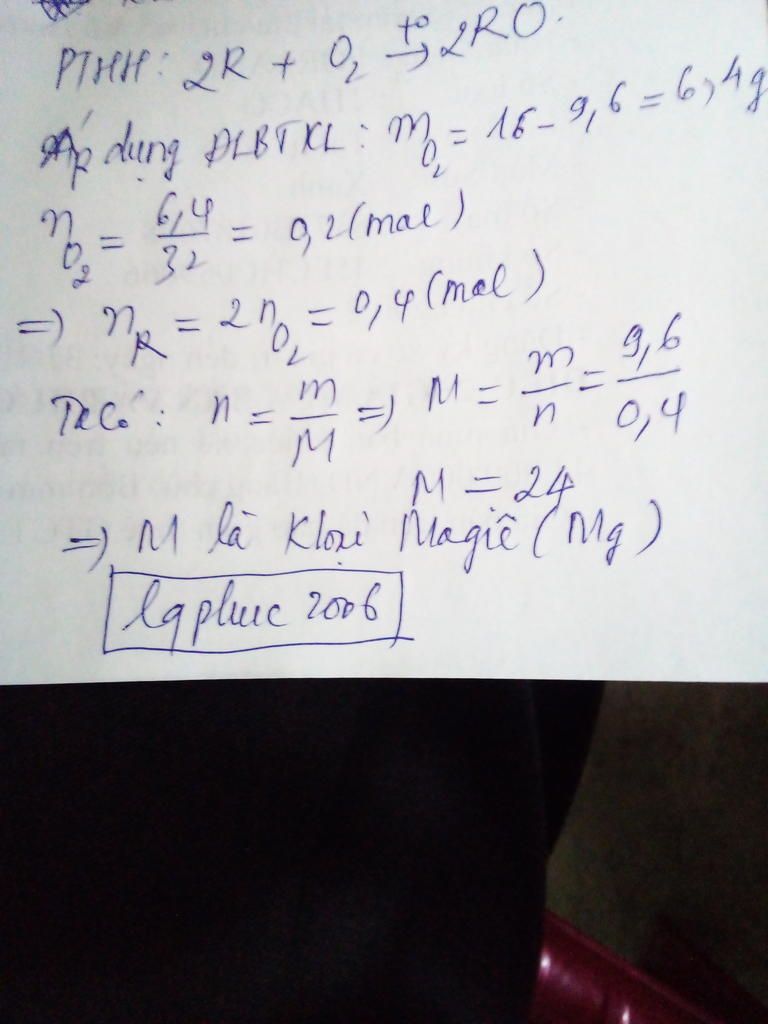 PTHH: 2R + O₂ →(t°) 2RO.
Áp dụng ĐLBTKL: m_O₂ = 16 - 9,6 = 6,4g
n_O₂ = 6,4/32 = 0,2 (mol)
=> n_R = 2n_O₂ = 0,4 (mol)
Ta có: n = m/M => M = m/n = 9,6/0,4
M = 24
=> M là kloại Magiê (Mg)
lqphuc 2006